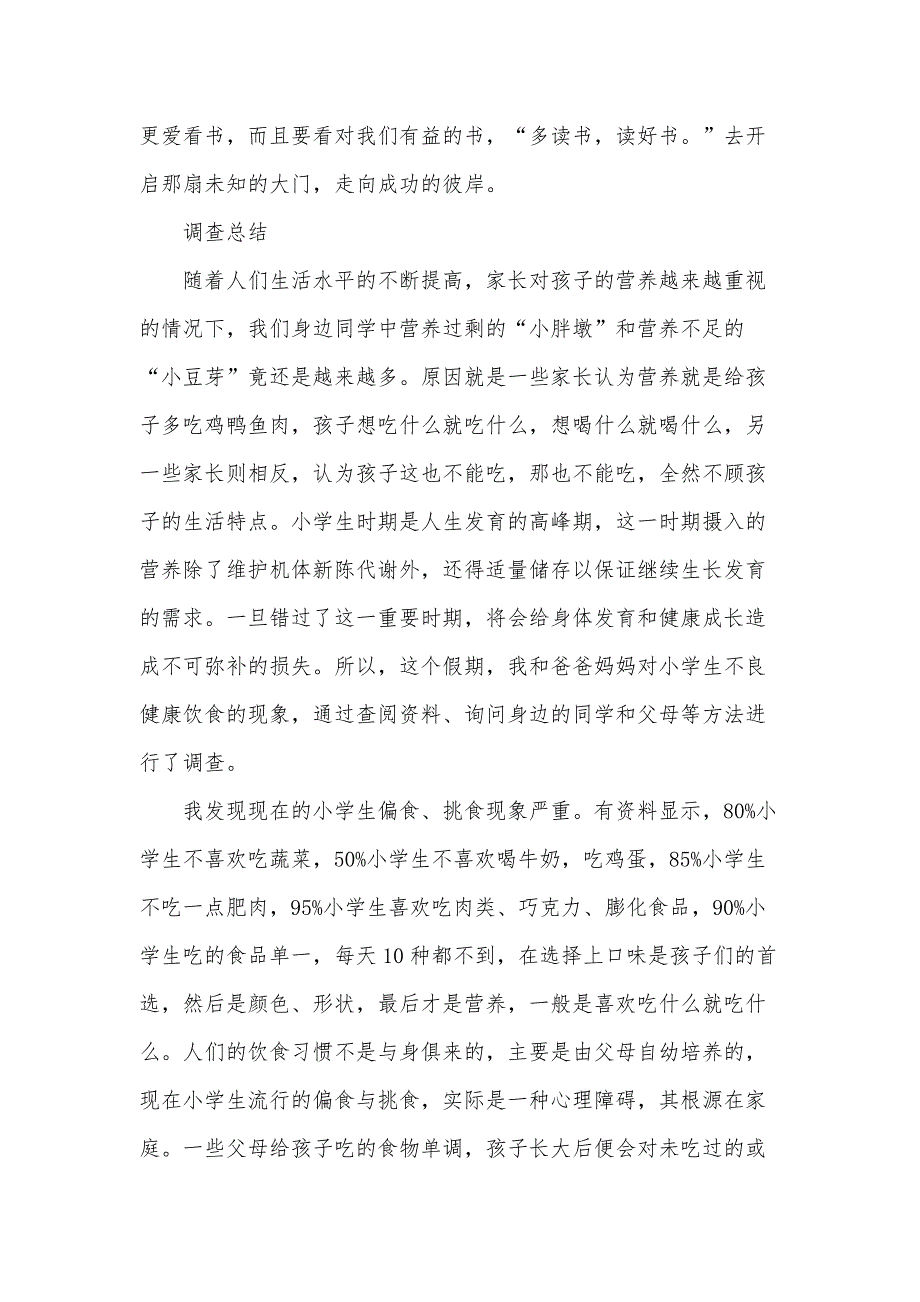 更爱看书，而且要看对我们有益的书，“多读书，读好书。”去开
启那扇未知的大门，走向成功的彼岸。
调查总结
随着人们生活水平的不断提高，家长对孩子的营养越来越重视
的情况下，我们身边同学中营养过剩的“小胖墩”和营养不足的
“小豆芽”竟还是越来越多。原因就是一些家长认为营养就是给孩
子多吃鸡鸭鱼肉，孩子想吃什么就吃什么，想喝什么就喝什么，另
一些家长则相反，认为孩子这也不能吃，那也不能吃，全然不顾孩
子的生活特点。小学生时期是人生发育的高峰期，这一时期摄入的
营养除了维护机体新陈代谢外，还得适量储存以保证继续生长发育
的需求。一旦错过了这一重要时期，将会给身体发育和健康成长造
成不可弥补的损失。所以，这个假期，我和爸爸妈妈对小学生不良
健康饮食的现象，通过查阅资料、询问身边的同学和父母等方法进
行了调查。
我发现现在的小学生偏食、挑食现象严重。有资料显示，80%小
学生不喜欢吃蔬菜，50%小学生不喜欢喝牛奶，吃鸡蛋，85%小学生
不吃一点肥肉，95%小学生喜欢吃肉类、巧克力、膨化食品，90%小
学生吃的食品单一，每天 10 种都不到，在选择上口味是孩子们的首
选，然后是颜色、形状，最后才是营养，一般是喜欢吃什么就吃什
么。人们的饮食习惯不是与身俱来的，主要是由父母自幼培养的，
现在小学生流行的偏食与挑食，实际是一种心理障碍，其根源在家
庭。一些父母给孩子吃的食物单调，孩子长大后便会对未吃过的或